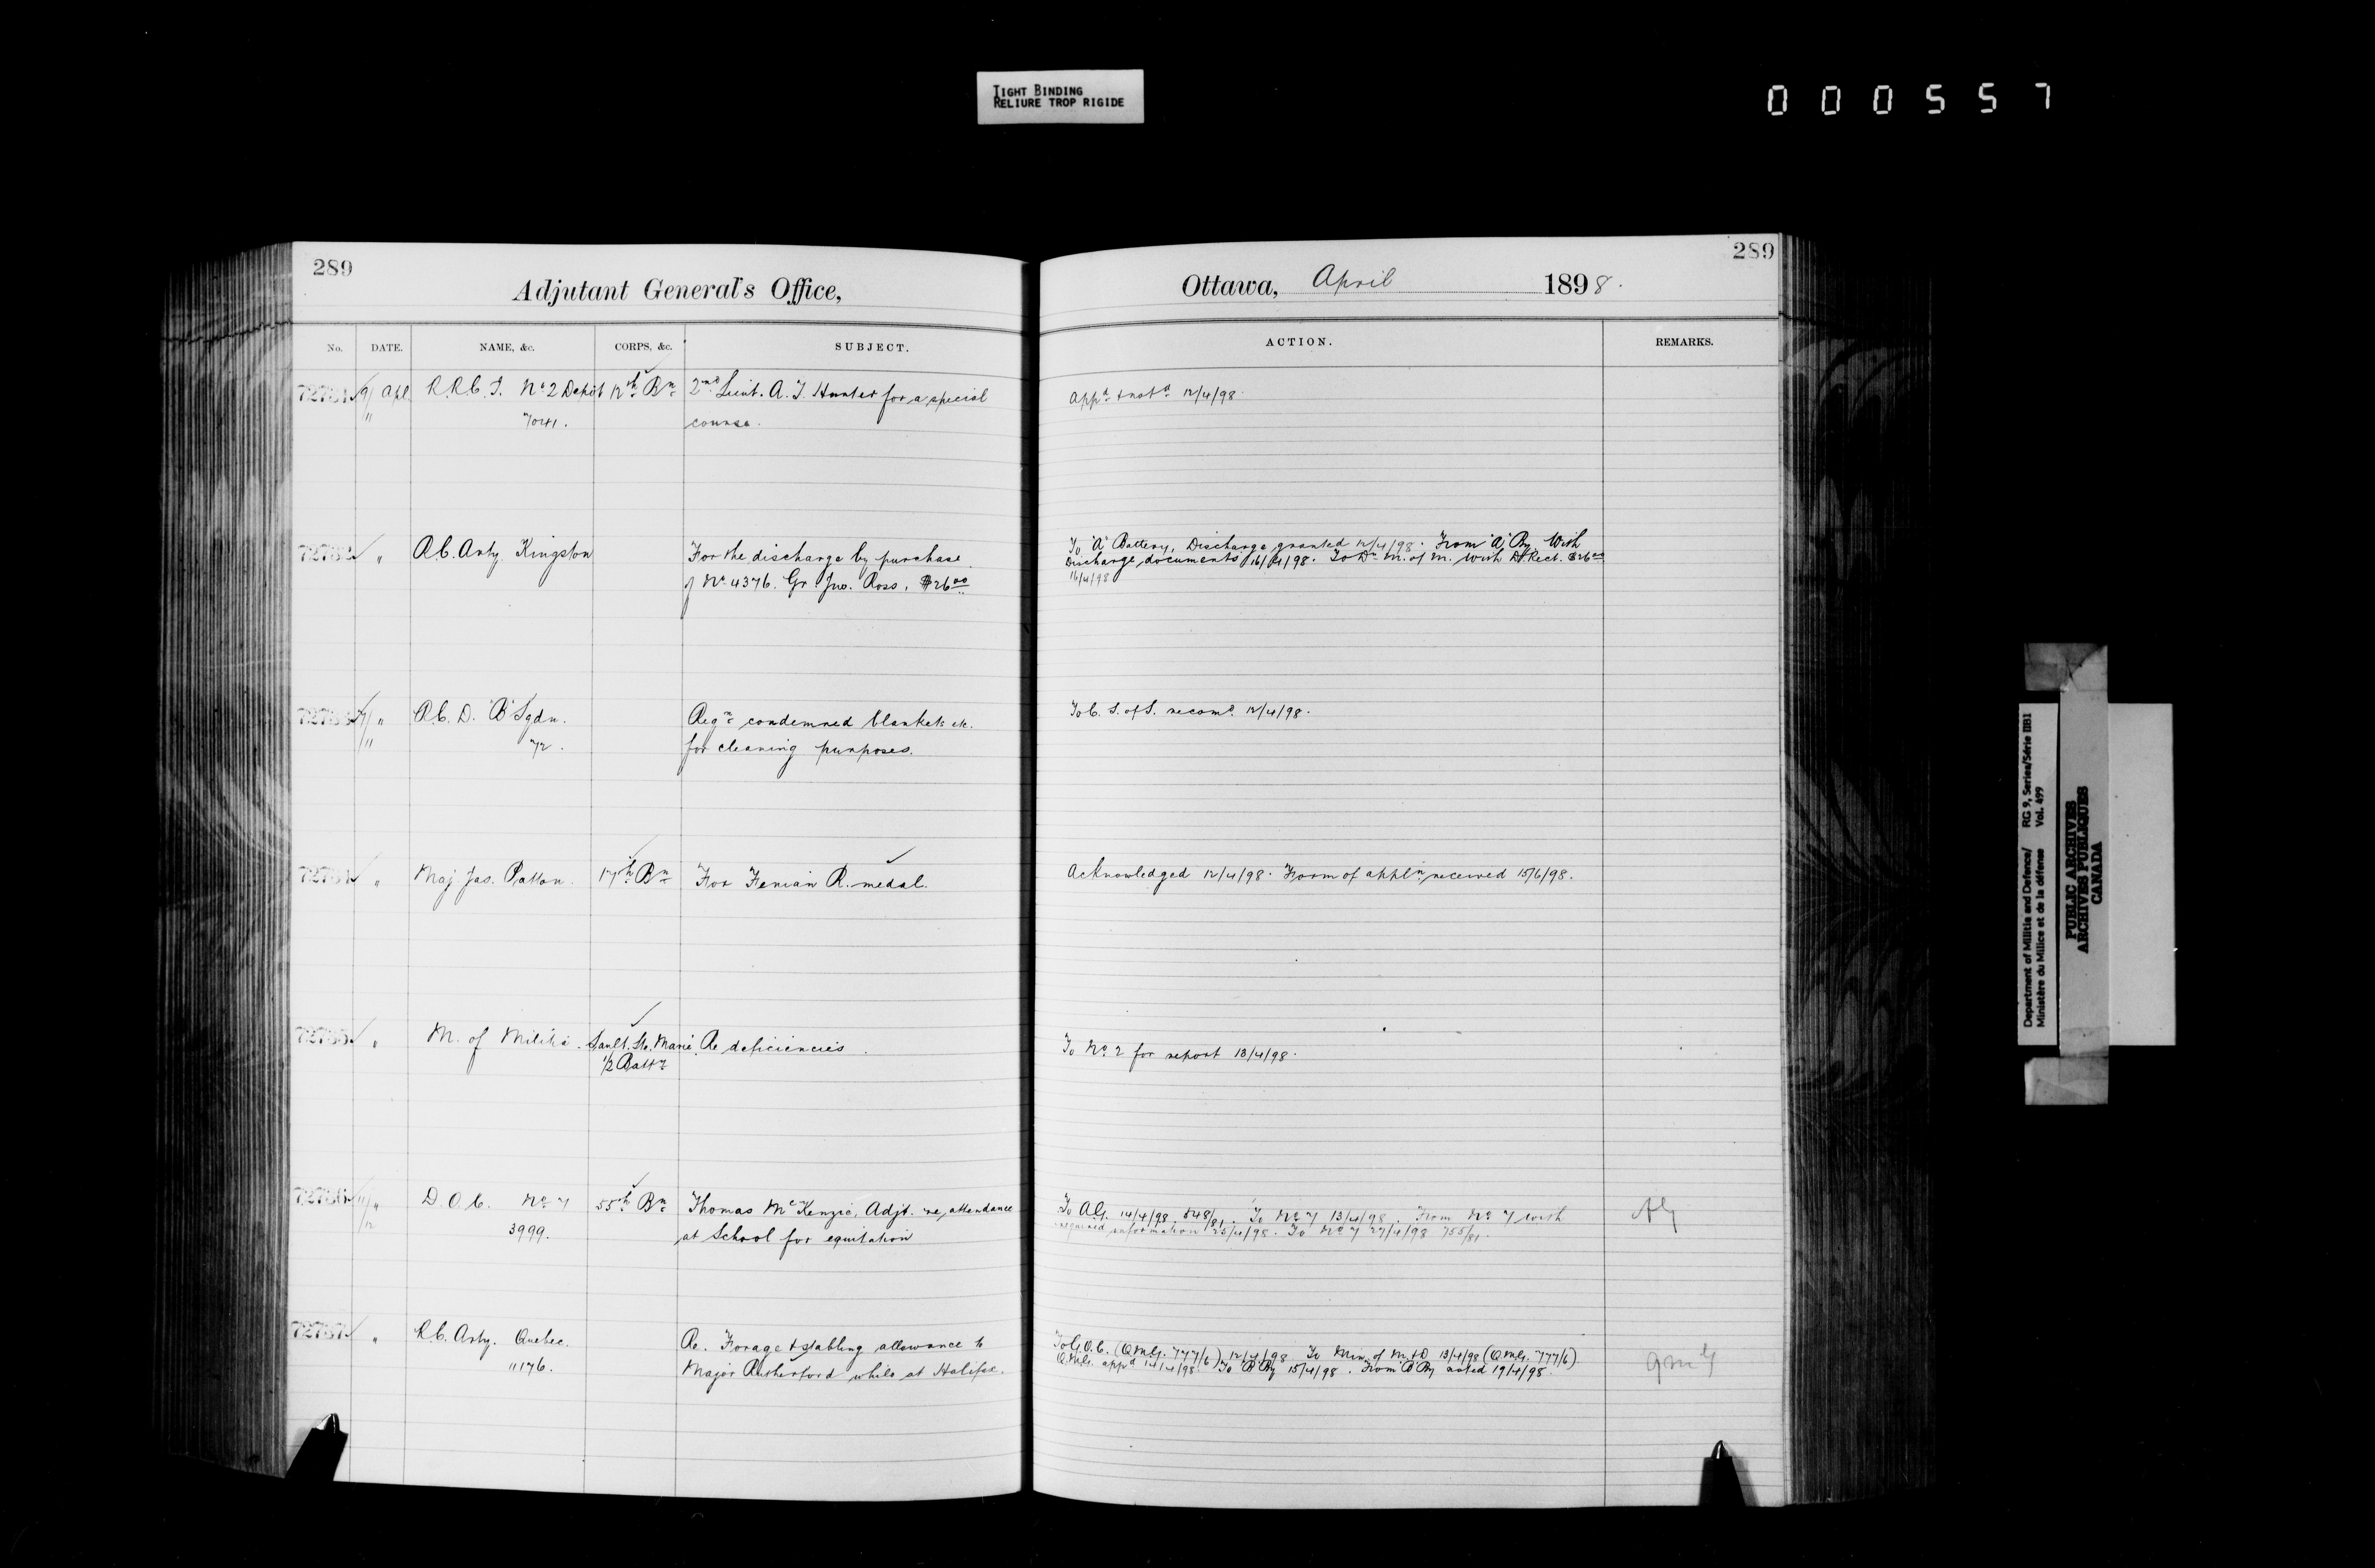 TIGHT BINDING
RELIURE TROP RIGIDE
000557
289
Adjutant General's Office,
No. DATE. NAME, &c. CORPS, &c. SUBJECT.
72731 9/11 Apl. R.R.C.I. No 2 Depot 12th Bn 2nd Lieut. A. T. Hunter for a special
7041. course.
72732 " R.C. Arty Kingston For the discharge by purchase
of No 4376. Gr. Jno. Ross, $26.00
72733 9/11 " R.C. D. "B" Sqdn. Reqn condemned blankets etc.
72. for cleaning purposes.
72734 " Maj. Jas. Patton. 17th Bn For Fenian R. medal.
72735 " M. of Militia. Sault. Ste. Marie Re deficiencies.
1/2 Batty
72736 11/12 " D.O.C. No 7 55th Bn Thomas McKenzie, Adjt. re, attendance
3999. at School for equitation
72737 " R.C. Arty. Quebec. Re. Forage & stabling allowance to
11176. Major Rutherford while at Halifax.
289
Ottawa, April 1898.
ACTION. REMARKS.
Appd & notd 12/4/98.
To "A" Battery, Discharge granted 12/4/98. From "A" By. With
Discharge documents 16/4/98. To Dr M. of M. with D. Rect. $26.00
16/4/98
To C. S. of S. recomd. 12/4/98.
Acknowledged 12/4/98. Form of appln received 15/6/98.
To No 2 for report 13/4/98.
To AG. 14/4/98. 548/81. To No 7 13/4/98. From No 7 with
required information 25/4/98. To No 7 27/4/98 755/81.
AG
To G.O.C. (QMG. 777/6) 12/4/98. To Min. of M. & D 13/4/98 (QMG. 777/6)
QMG. appd 14/4/98. To "B" By 15/4/98. From "B" By noted 19/4/98.
QMG
Department of Militia and Defence/ RG 9, Series/Série IIB1
Ministère du Milice et de la défense Vol. 499
PUBLIC ARCHIVES
ARCHIVES PUBLIQUES
CANADA